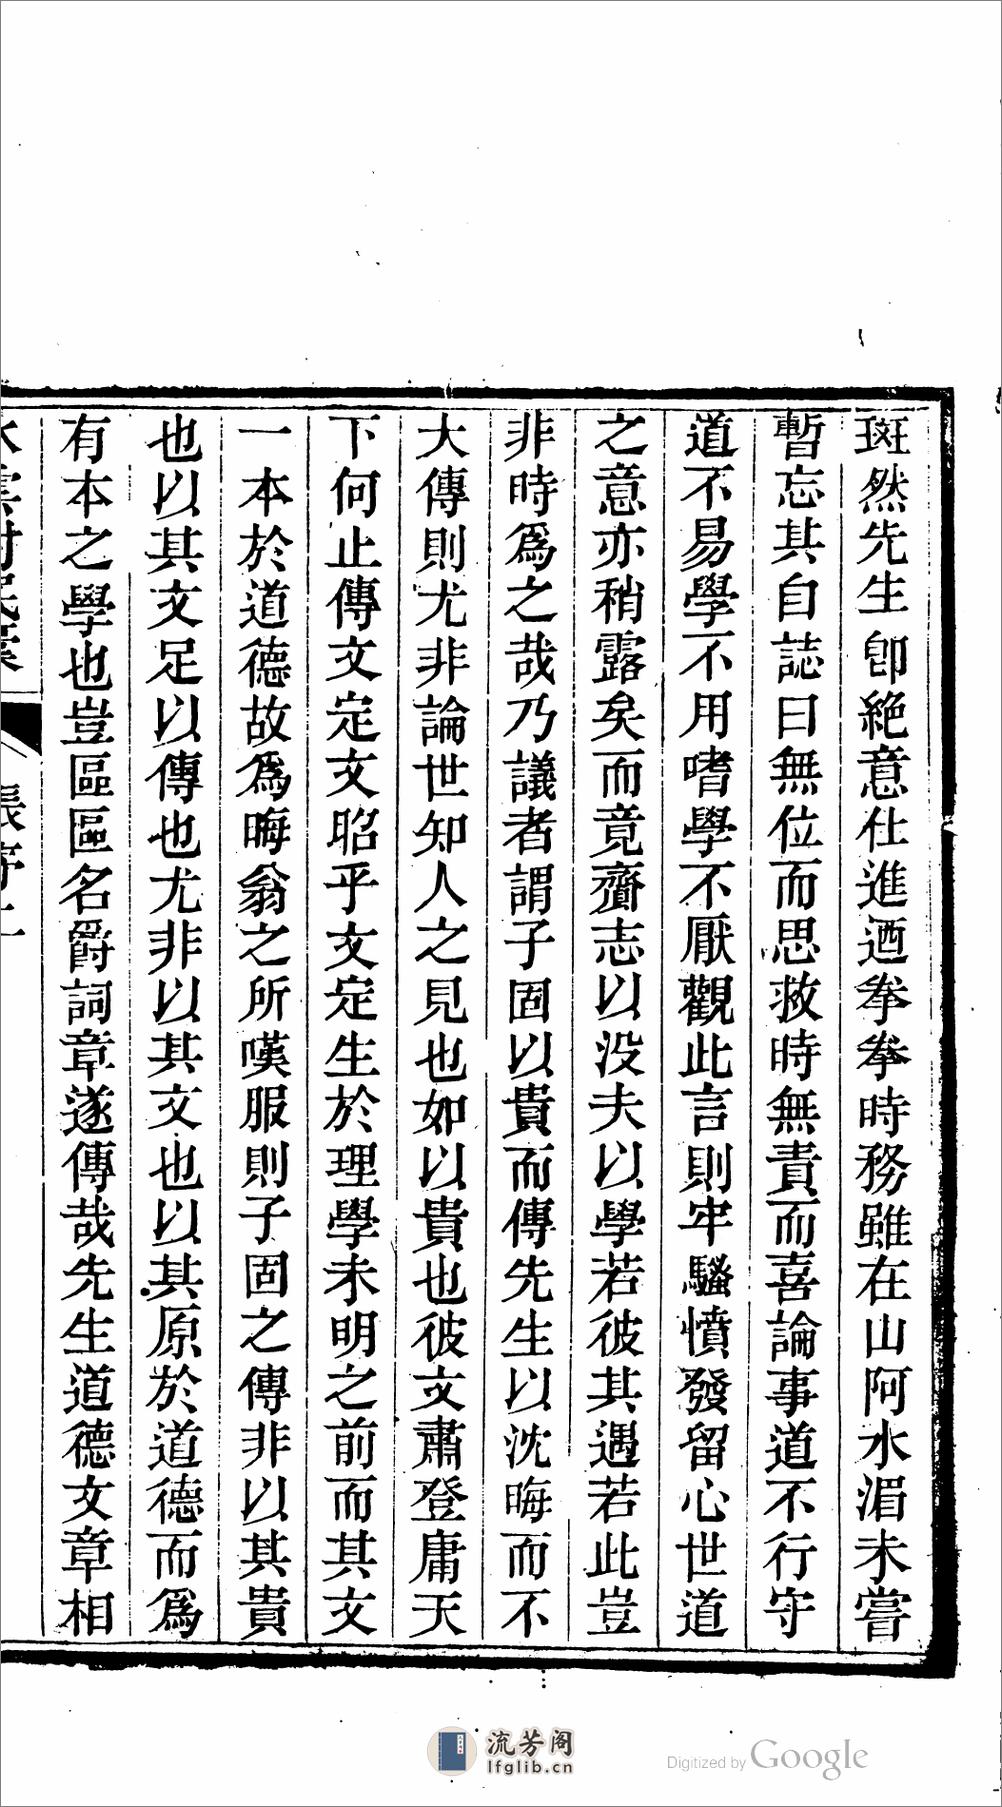 斑然先生卽絶意仕進迺拳拳時務雖在山阿水湄未嘗
暫忘其自誌曰無位而思救時無責而喜論事道不行守
道不易學不用嗜學不厭觀此言則牢騷憤發留心世道
之意亦稍露矣而竟齎志以没夫以學若彼其遇若此豈
非時爲之哉乃議者謂子固以貴而傳先生以沈晦而不
大傳則尤非論世知人之見也如以貴也彼文肅登庸天
下何止傳文定文昭乎文定生於理學未明之前而其文
一本於道德故爲晦翁之所嘆服則子固之傳非以其貴
也以其文足以傳也尤非以其文也以其原於道德而爲
有本之學也豈區區名爵詞章遂傳哉先生道德文章相
流芳阁
lfglib.cn
Digitized by Google